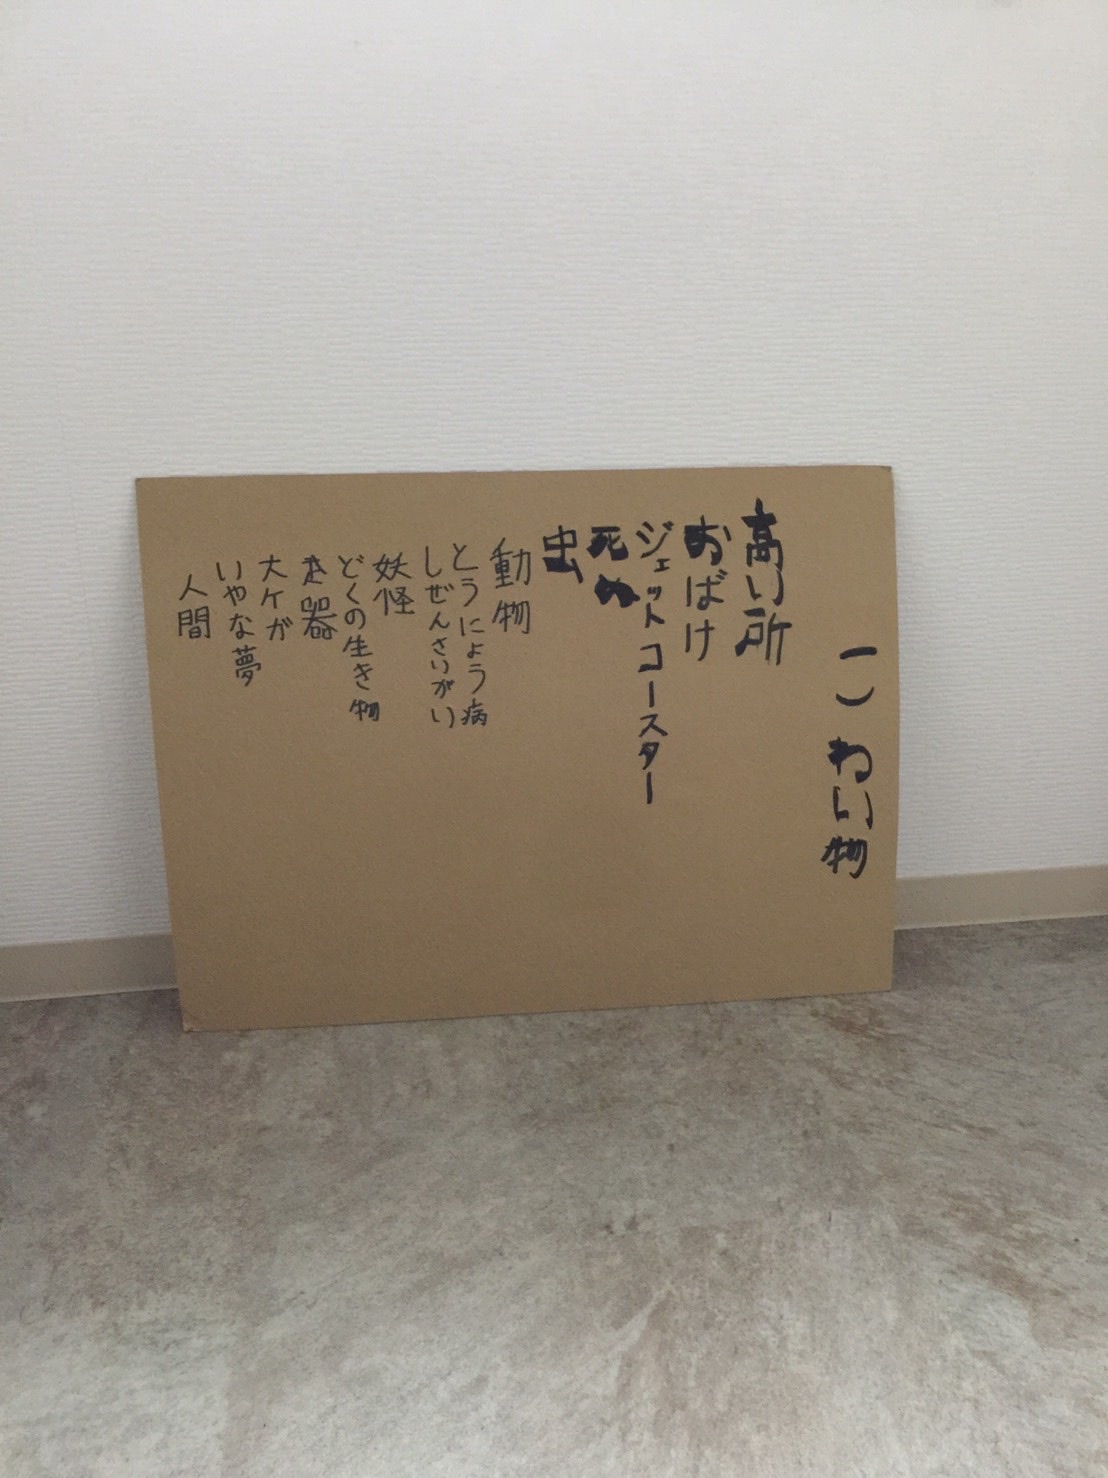 こわい物
高い所
おばけ
ジェットコースター
死ぬ
虫
動物
とうにょう病
しぜんさいがい
妖怪
どくの生き物
大ケが
いやな夢
人間